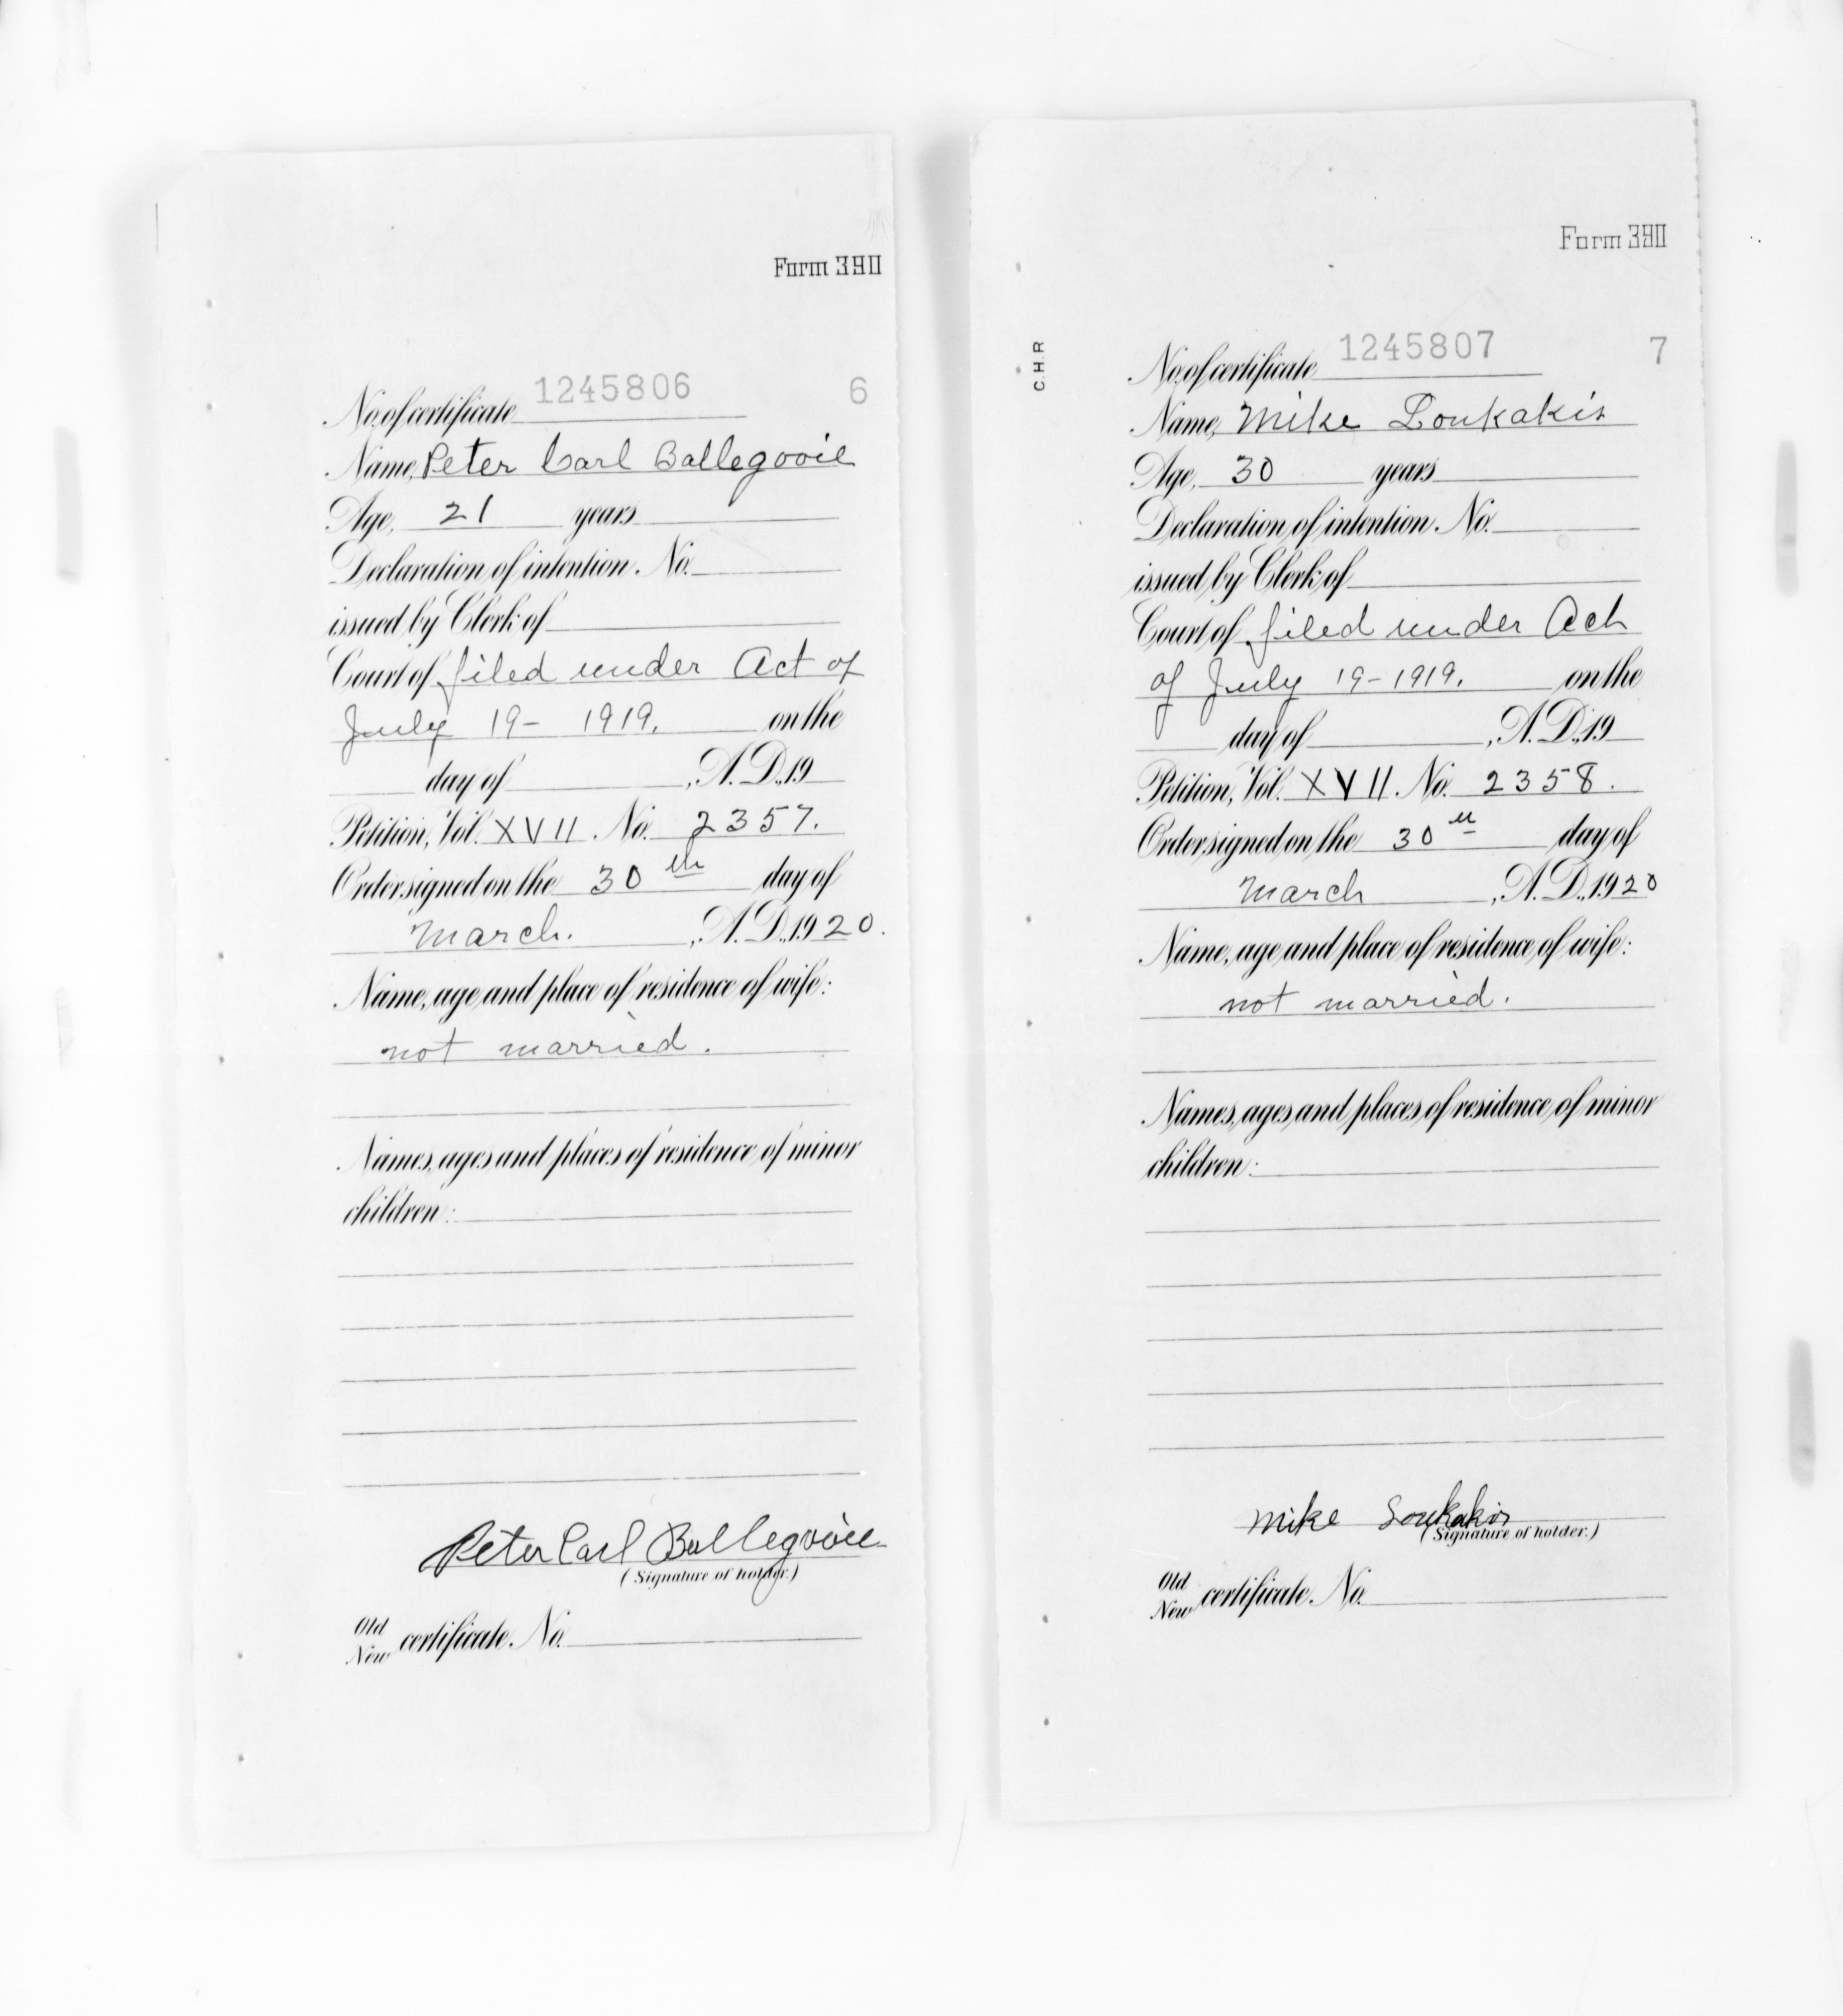 Form 390
No. of certificate 1245806 6
Name, Peter Carl Ballegooie
Age, 21 years
Declaration of intention No.
issued by Clerk of
Court of filed under Act of
July 19 - 1919. on the
day of , A.D., 19
Petition, Vol. XVII. No. 2357.
Order signed on the 30th day of
March. , A.D., 1920.
Name, age and place of residence of wife:
not married.
Names, ages and places of residence of minor
children:
Peter Carl Ballegooie
(Signature of holder.)
Old
New certificate No.
Form 390
C.H.R
No. of certificate 1245807 7
Name, Mike Loukakis
Age, 30 years
Declaration of intention No.
issued by Clerk of
Court of filed under Act
of July 19 - 1919. on the
day of , A.D., 19
Petition, Vol. XVII. No. 2358.
Order signed on the 30th day of
March , A.D., 1920
Name, age and place of residence of wife:
not married.
Names, ages and places of residence of minor
children:
Mike Loukakis
(Signature of holder.)
Old
New certificate No.